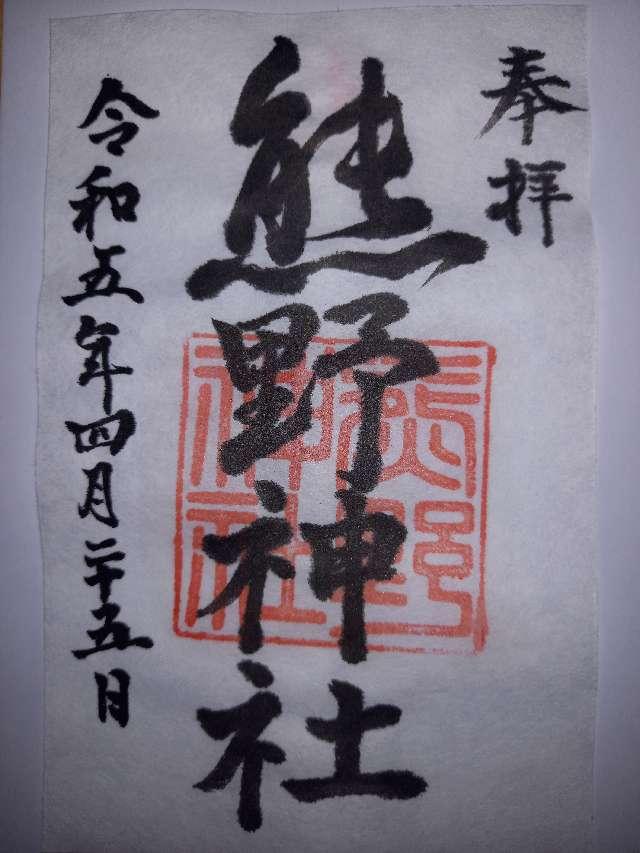 奉拝
熊野神社
熊野
神社
令和五年四月二十五日